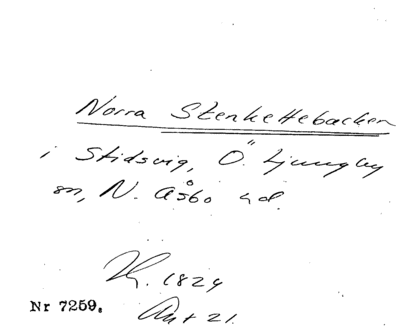 Norra Stenkettebacken
i Stidsvig, Ö. Ljungby
sn, N. Åsbo hd.
1824
Nr 7259.
Akt 21.